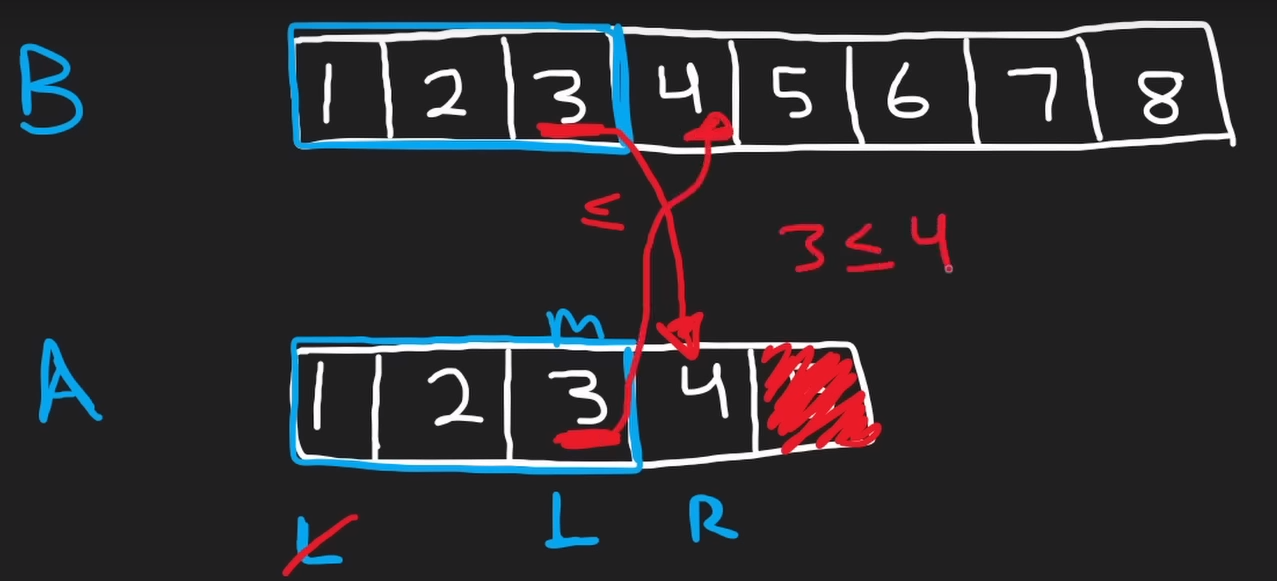 B 1 2 3 4 5 6 7 8
≤ 3 ≤ 4
m
A 1 2 3 4
L L R